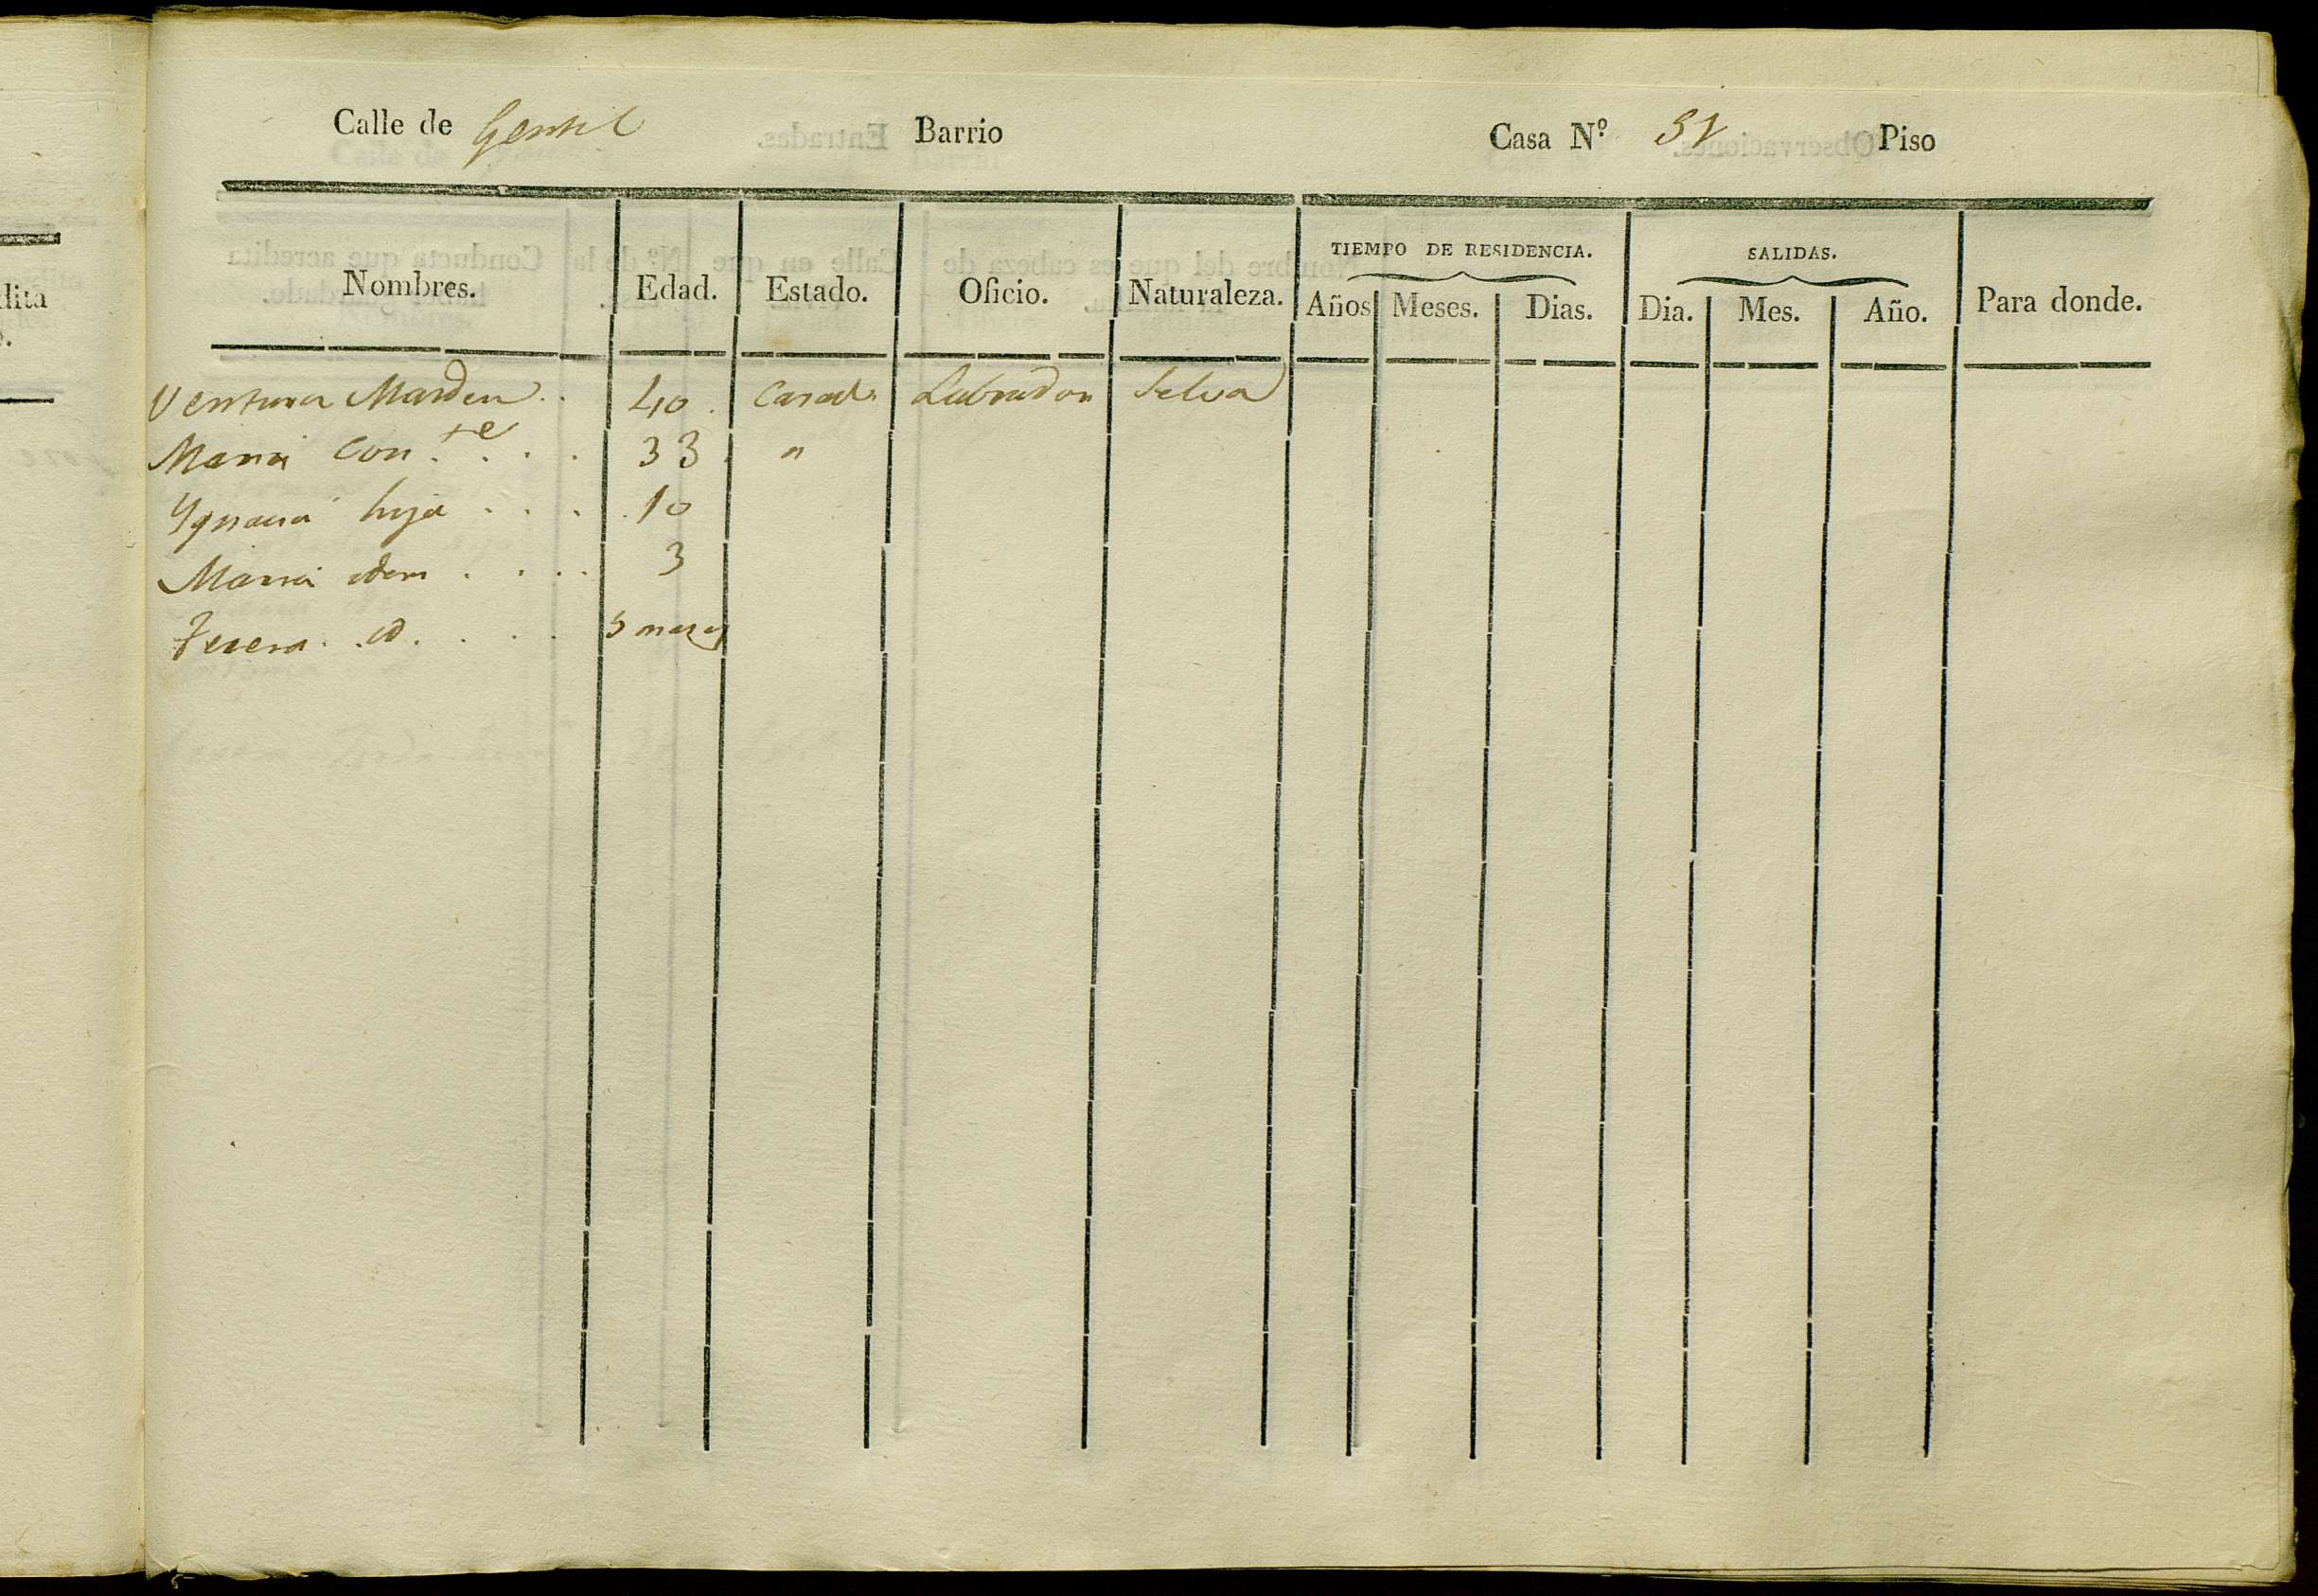 Calle de Gentil Barrio Casa Nº Piso
Nombres. Edad. Estado. Oficio. Naturaleza. TIEMPO DE RESIDENCIA. Años Meses. Dias. SALIDAS. Dia. Mes. Año. Para donde.
Ventura 40. Casado Labrador Selva
Maria Con.te 33 "
Ygnacia hija 10
Maria idem 3
Teresa id. 5 meses
dita